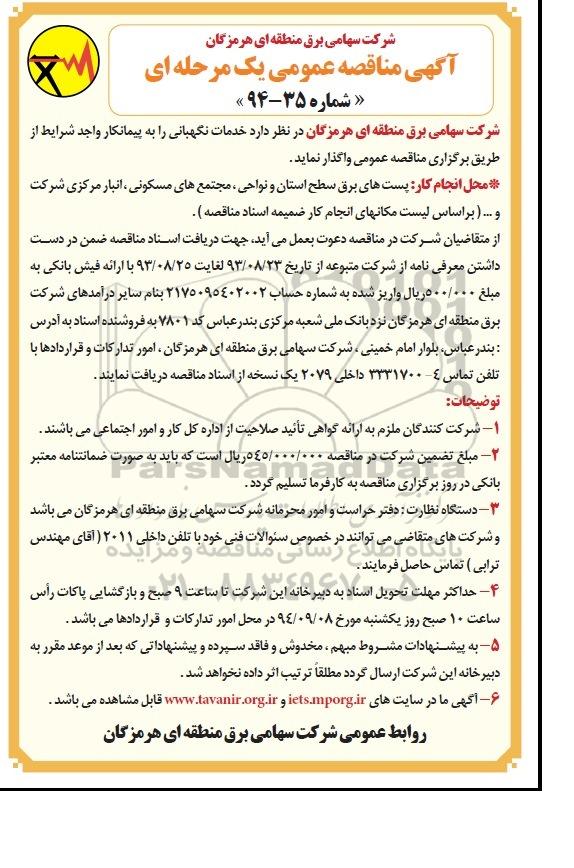 شرکت سهامی برق منطقه ای هرمزگان
آگهی مناقصه عمومی یک مرحله ای
« شماره ۳۵-۹۴ »
شرکت سهامی برق منطقه ای هرمزگان در نظر دارد خدمات نگهبانی را به پیمانکار واجد شرایط از
طریق برگزاری مناقصه عمومی واگذار نماید .
*محل انجام کار: پست های برق سطح استان و نواحی ، مجتمع های مسکونی ، انبار مرکزی شرکت
و ... ( براساس لیست مکانهای انجام کار ضمیمه اسناد مناقصه ) .
از متقاضیان شرکت در مناقصه دعوت بعمل می آید، جهت دریافت اسناد مناقصه ضمن در دست
داشتن معرفی نامه از شرکت متبوعه از تاریخ ۹۳/۰۸/۲۳ لغایت ۹۳/۰۸/۲۵ با ارائه فیش بانکی به
مبلغ ۵۰۰/۰۰۰ریال واریز شده به شماره حساب ۲۱۷۵۰۹۵۴۰۲۰۰۲ بنام سایر درآمدهای شرکت
برق منطقه ای هرمزگان نزد بانک ملی شعبه مرکزی بندرعباس کد ۷۸۰۱ به فروشنده اسناد به آدرس
: بندرعباس، بلوار امام خمینی ، شرکت سهامی برق منطقه ای هرمزگان ، امور تدارکات و قراردادها با
تلفن تماس ۴- ۳۳۳۱۷۰۰ داخلی ۲۰۷۹ یک نسخه از اسناد مناقصه دریافت نمایند .
توضیحات:
۱- شرکت کنندگان ملزم به ارائه گواهی تأئید صلاحیت از اداره کل کار و امور اجتماعی می باشند .
۲- مبلغ تضمین شرکت در مناقصه ۵۴۵/۰۰۰/۰۰۰ریال است که باید به صورت ضمانتنامه معتبر
بانکی در روز برگزاری مناقصه به کارفرما تسلیم گردد .
۳- دستگاه نظارت : دفتر حراست و امور محرمانه شرکت سهامی برق منطقه ای هرمزگان می باشد
و شرکت های متقاضی می توانند در خصوص سئوالات فنی خود با تلفن داخلی ۲۰۱۱ ( آقای مهندس
ترابی ) تماس حاصل فرمایند .
۴- حداکثر مهلت تحویل اسناد به دبیرخانه این شرکت تا ساعت ۹ صبح و بازگشایی پاکات رأس
ساعت ۱۰ صبح روز یکشنبه مورخ ۹۴/۰۹/۰۸ در محل امور تدارکات و قراردادها می باشد .
۵- به پیشنهادات مشروط مبهم ، مخدوش و فاقد سپرده و پیشنهاداتی که بعد از موعد مقرر به
دبیرخانه این شرکت ارسال گردد مطلقاً ترتیب اثر داده نخواهد شد .
۶- آگهی ما در سایت های iets.mporg.ir و www.tavanir.org.ir قابل مشاهده می باشد .
روابط عمومی شرکت سهامی برق منطقه ای هرمزگان
ParsNamadData
پایگاه اطلاع رسانی مناقصه و مزایده
۰۲۱-۸۸۳۴۹۶۷۰-۵